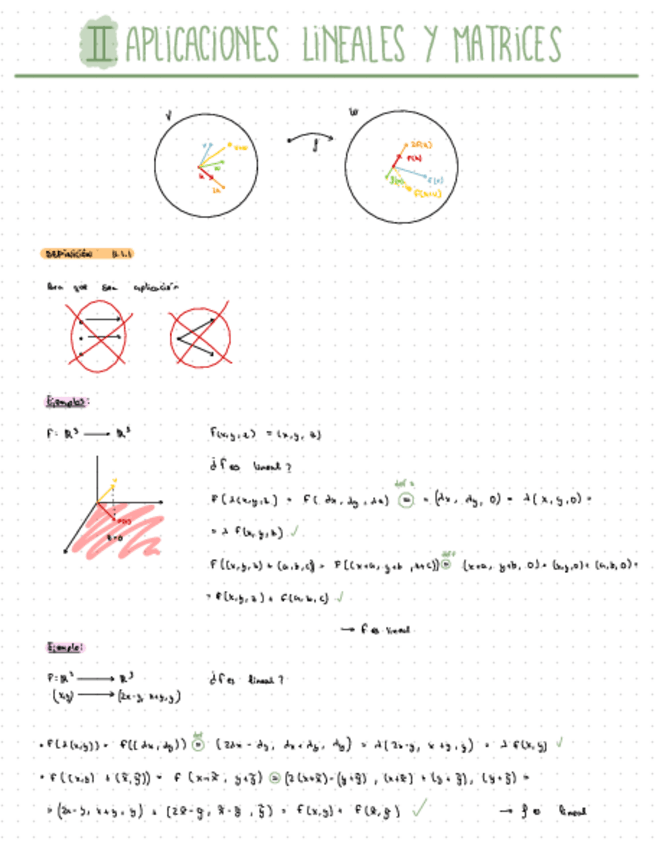 II. APLICACIONES LINEALES Y MATRICES
V
W
f
u
2u
2f(u)
f(u)
f(v)
DEFINICIÓN II.1.1
Para que sea aplicación
Ejemplos:
F: ℝ³ → ℝ³
F(x,y,z) = (x,y,
¿F es lineal?
F(λ(x,y,z) = F(λx, λy, λz) = (λx, λy, 0) = λ(x,y,0) =
= λ F(x,y,z) ✓
F((x,y,z) + (a,b,c) = F((x+a, y+b, z+c)) = (x+a, y+b, 0) = (x,y,0) + (a,b,0) =
= F(x,y,z) + F(a,b,c) ✓
z=0
→ F es lineal
Ejemplo:
F: ℝ² → ℝ³
¿F es lineal?
(x,y) → (2x-y, x+y, y)
• F(λ(x,y)) = F((λx, λy)) = (2λx - λy, λx + λy, λy) = λ(2x-y, x+y, y) = λ F(x,y) ✓
• F((x,y) + (x̃,ỹ)) = F(x+x̃, y+ỹ) = (2(x+x̃)-(y+ỹ), (x+x̃) + (y+ỹ), (y+ỹ) =
= (2x-y, x+y, y) + (2x̃-ỹ, x̃-ỹ, ỹ) = F(x,y) + F(x̃,ỹ) ✓ → f es lineal